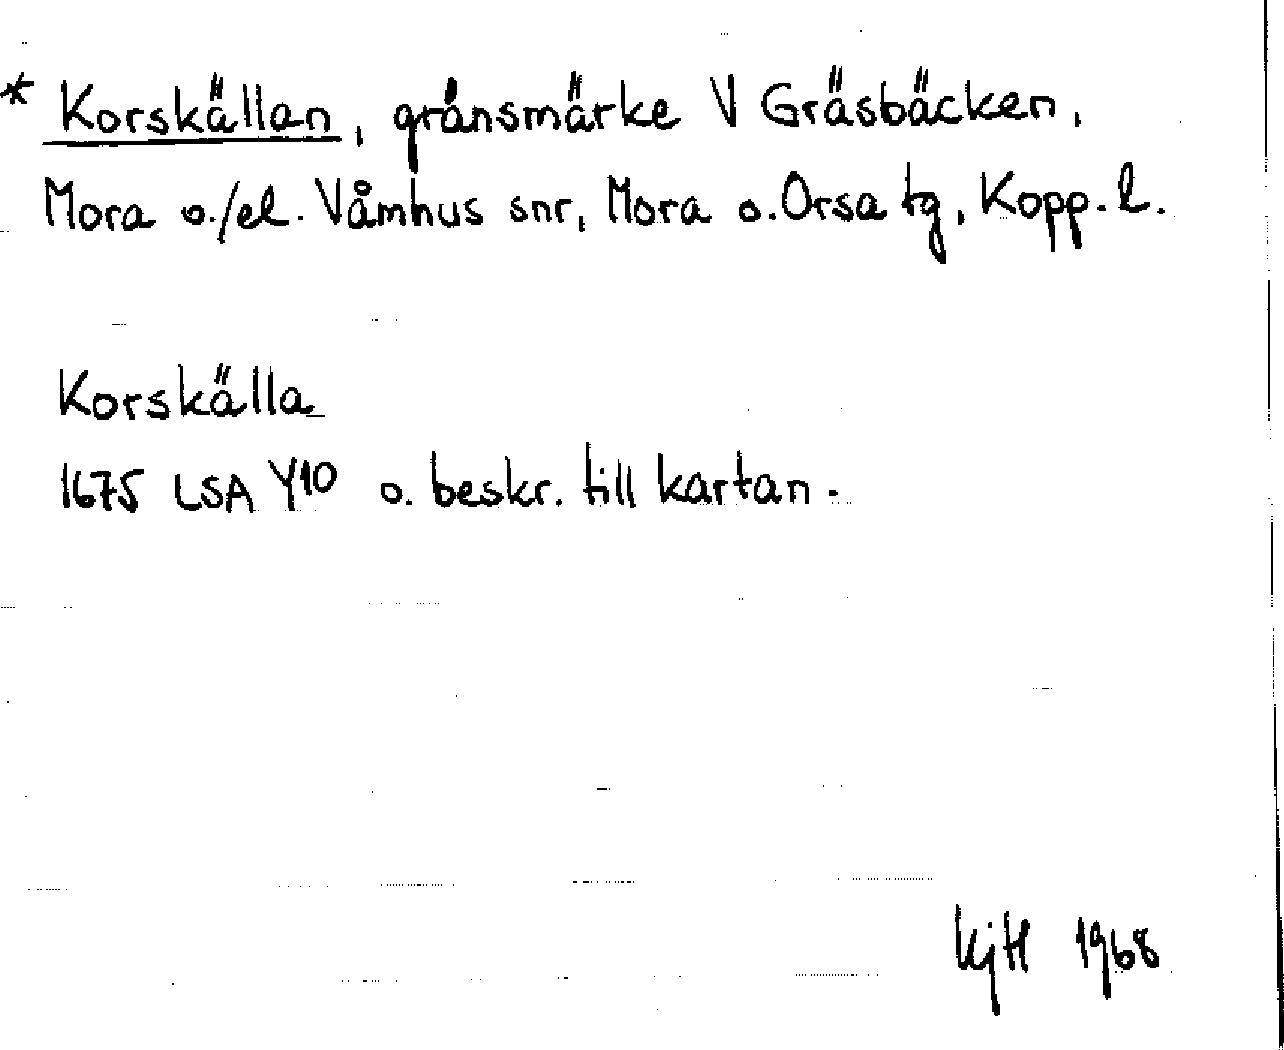 * Korskällan, gränsmärke V Gräsbäcken,
Mora o./el. Våmhus snr, Mora o. Orsa tg, Kopp. l.
Korskälla
1675 LSA Y10 o. beskr. till kartan.
KjH 1968